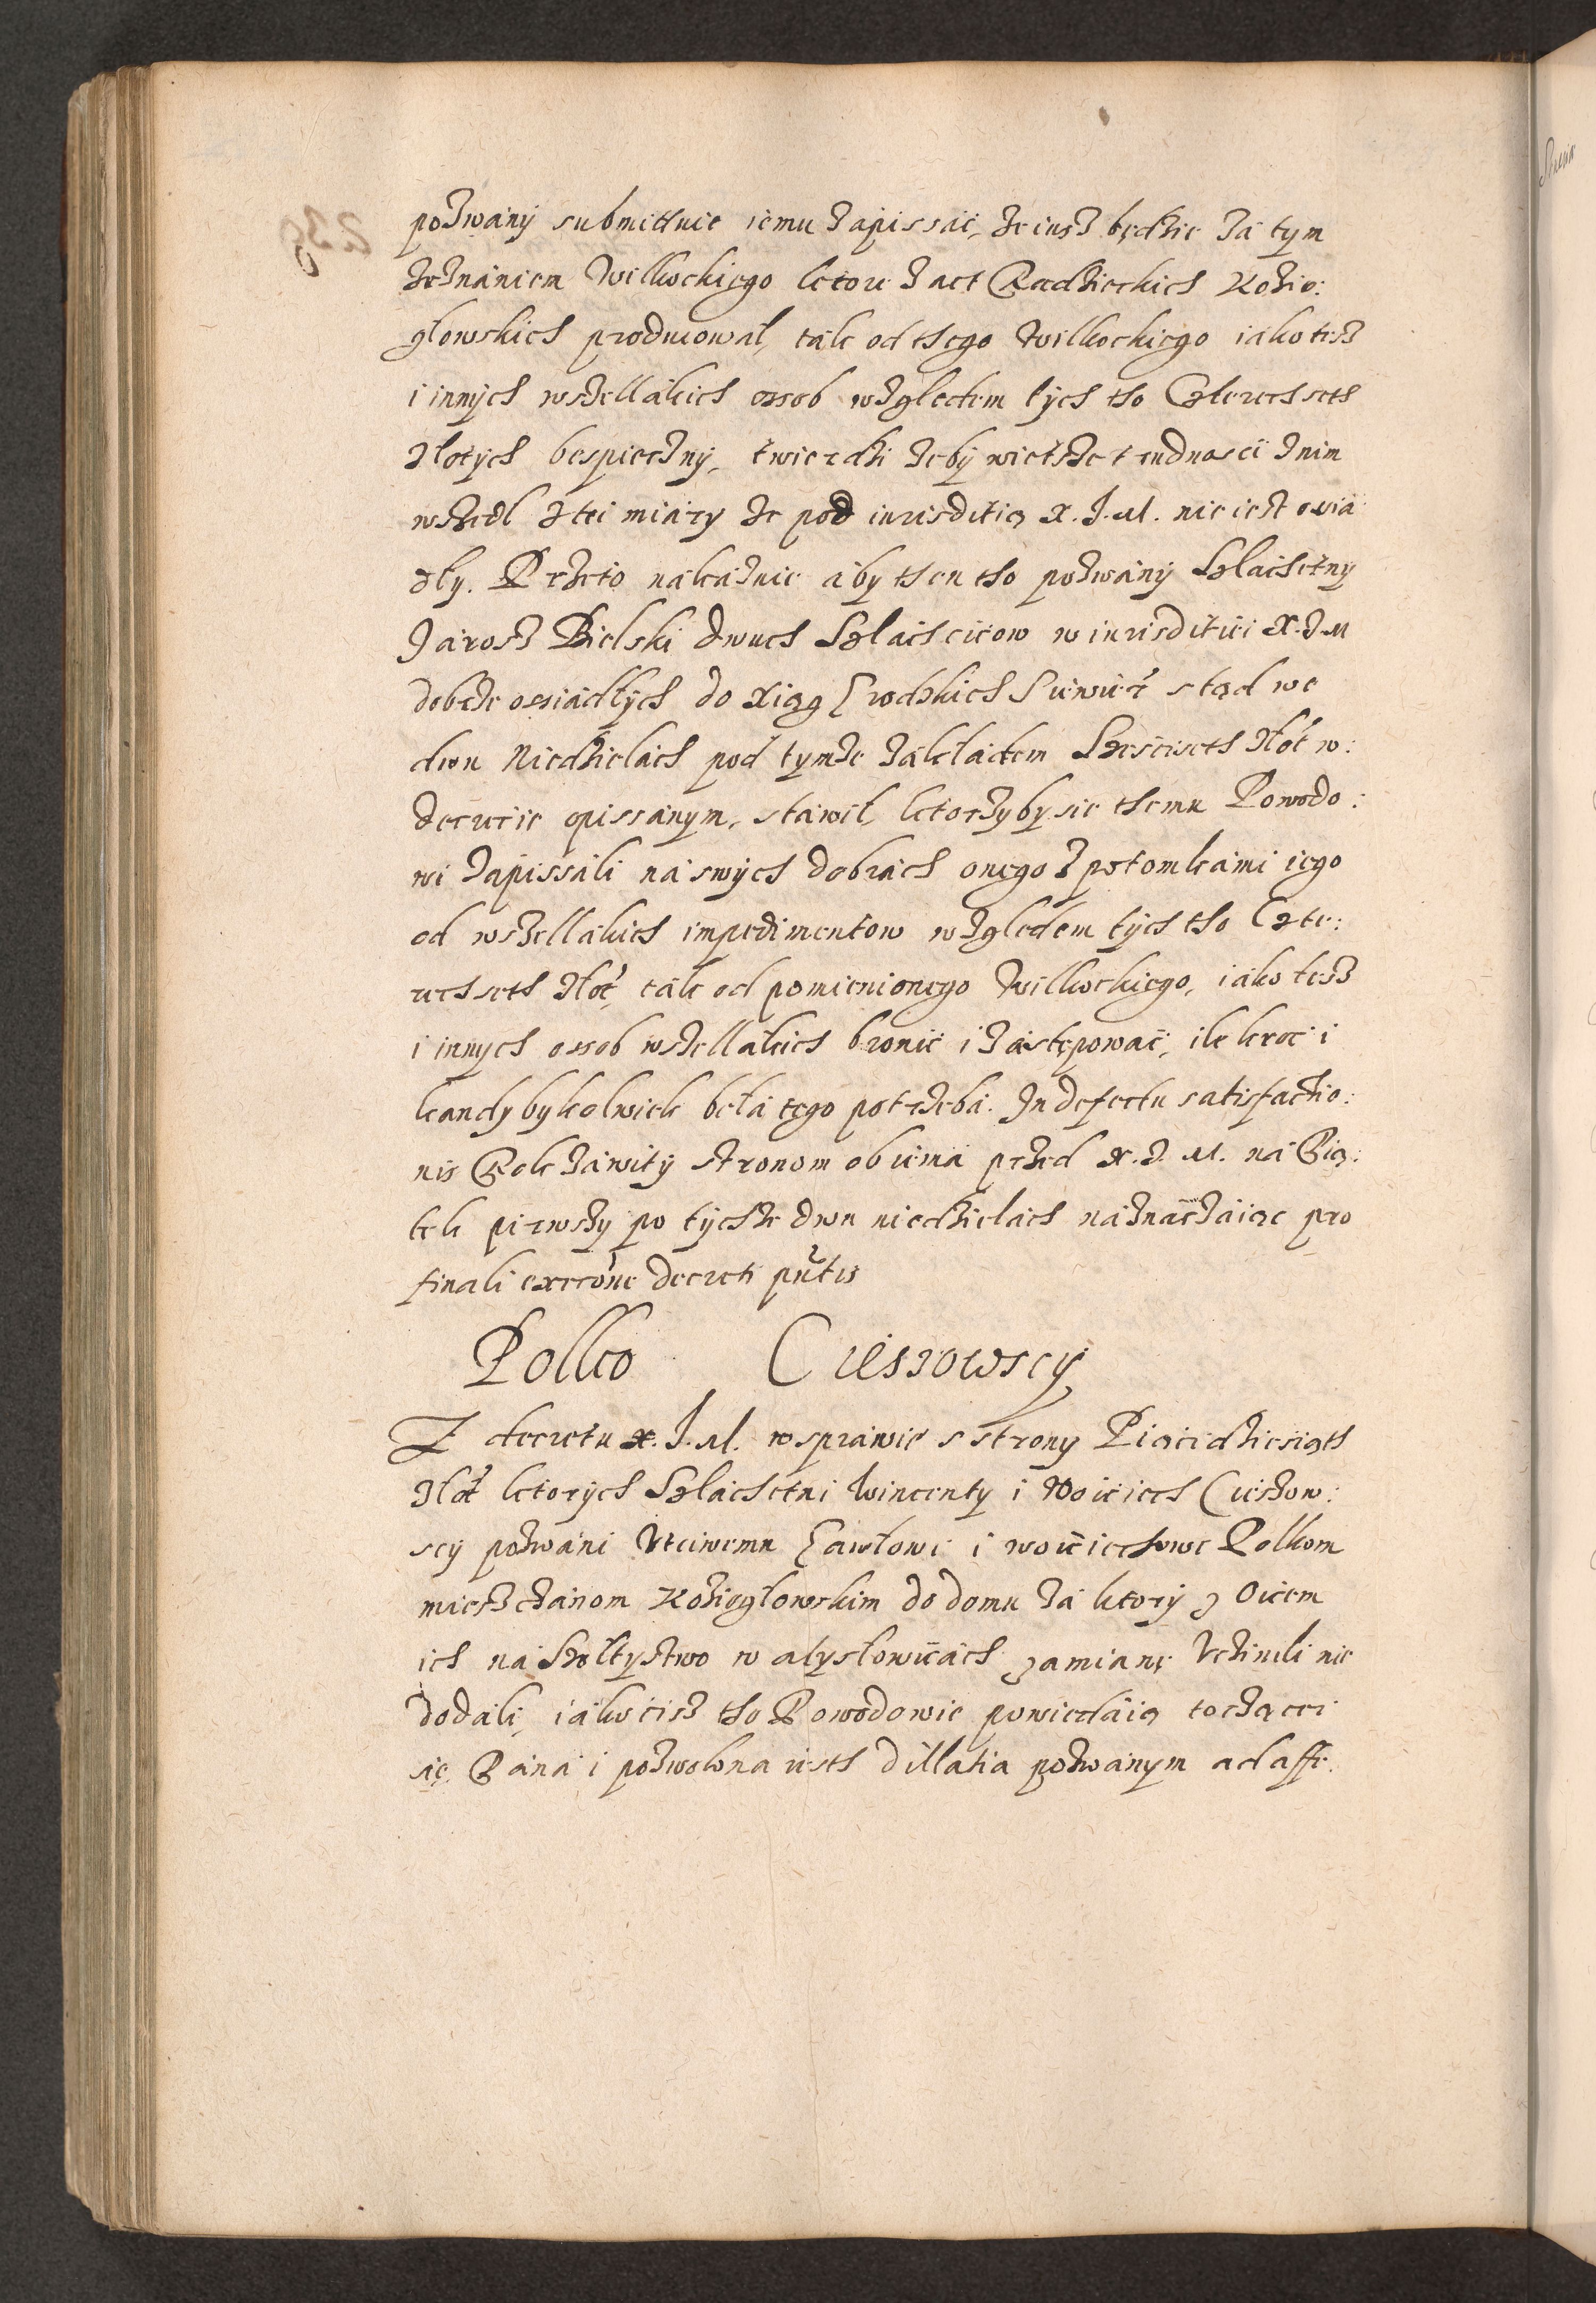 pozwany submittuie iemu zapissac, ze iusz będzie za tym
zeznaniem Wilkockiego ktore z act Radzieckich Kozie:
głowskich producował, tak od thego Wilkockiego iako tesz
i innych wszellakich ossob względem tych tho Czterechseth
złotych bespieczny, twierdzi zeby wietsze trudnosci z nim
wszedl z tei miary ze pod iurisditią X. J. M. nie iest osia
dly. Przeto nakazuie aby then tho pozwany Szlachetny
Jarosz Bielski dwuch Szlachcicow w iurisditiei X. J. M
dobrze ossiadłych do Xiąg Grodzkich Siewier stąd we
dwu Niedzielach pod tymze zakładem Szesciseth złot w:
decrecie opissanym, stawił, ktorzyby sie themu Powodo:
wi zapissali na swych dobrach onego z potomkami iego
od wszellakich impedimentow względem tych tho Czte:
rechseth złot, tak od pomienionego Wilkockiego, iako tesz
i innych ossob wszellakich bronic i zastępowac, ile kroc i
kandybykolwiek beła tego potrzeba. In defectu satisfactio:
nis Rok zawity stronom obiema przed X. J. M. na Pią:
tek pierwszy po tychze dwu niedzielach naznaczaiąc pro
finali exccone decreti pntis
Polko Cieszowscy
Z decretu X. J. M. w sprawie s strony Pięcidziesiąth
złot ktorych Szlachetni Wincenty i Woiciech Cieszow:
scy pozwani Uczciwemu Gawłowi i Woiciechowi Polkom
mieszczanom Kozięglowskim do domu za ktory z Oicem
ich na Szołtystwo w Mysłowicach zamianę Uczinili nie
dodali, iako cisz tho Powodowie powiedaią tocząci
się Pana i pozwolona iesth dillatia pozwanym ad affe: